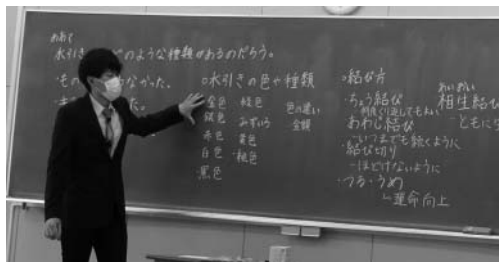 めあて
水引きのような種類があるのだろう。
なかった。
た。
○水引きの色や種類
・金色 緑色
・銀色 みずいろ
・赤色 黄色
・白色 ・桃色
・黒色
色の違い
金額
○結び方
・ちょう結び
何度くり返してもよい
・あわじ結び
いつまでも続くように
・結び切り
ほどけないように
・つる・うめ
運命向上
あいおい
相生結び
ともに